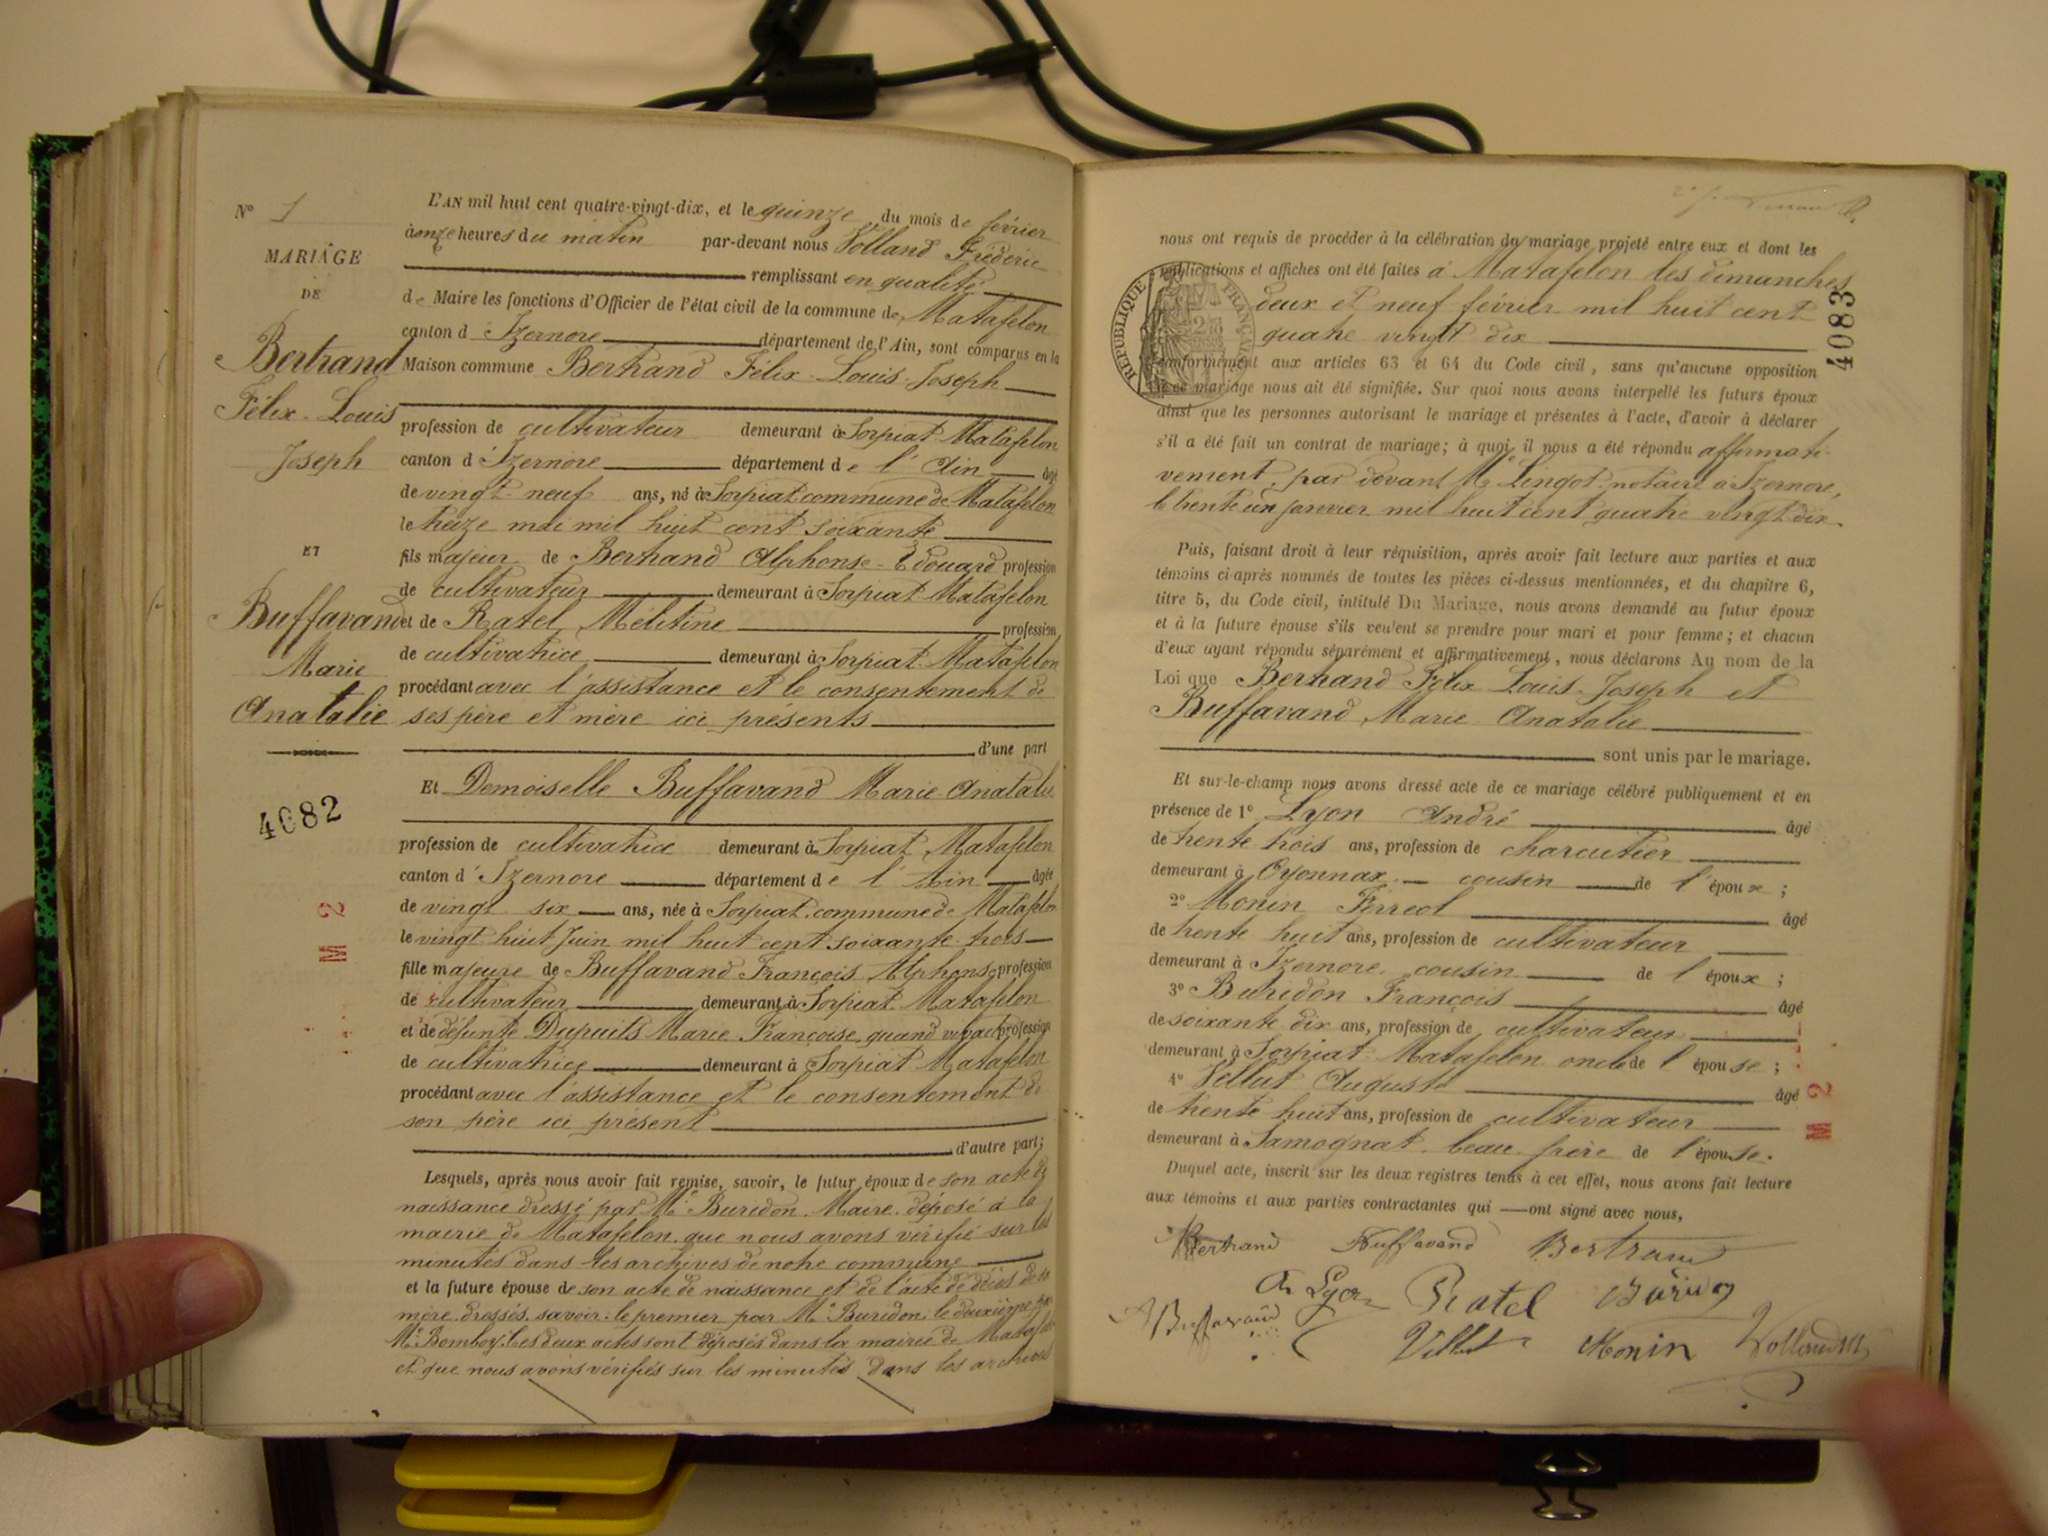 N° 1
MARIAGE
DE
Bertrand
Félix-Louis
Joseph
ET
Buffavand
Marie
Anatalie
4082
M 2
L'AN mil huit cent quatre-vingt-dix, et le quinze du mois de février
à onze heures du matin par-devant nous Volland Fréderic
remplissant en qualité
de Maire les fonctions d'Officier de l'état civil de la commune de Matafelon
canton d'Izernore département de l'Ain, sont comparus en la
Maison commune Bertrand Félix-Louis-Joseph
profession de cultivateur demeurant à Sorpiat Matafelon
canton d'Izernore département de l'Ain âgé
de vingt-neuf ans, né à Sorpiat commune de Matafelon
le treize mai mil huit cent soixante
fils majeur de Bertrand Alphonse-Edouard profession
de cultivateur demeurant à Sorpiat Matafelon
et de Ratel Mélitine profession
de cultivatrice demeurant à Sorpiat Matafelon
procédant avec l'assistance et le consentement de
ses père et mère ici présents
d'une part
Et Demoiselle Buffavand Marie Anatalie
profession de cultivatrice demeurant à Sorpiat Matafelon
canton d'Izernore département de l'Ain âgée
de vingt six ans, née à Sorpiat commune de Matafelon
le vingt huit Juin mil huit cent soixante-trois
fille majeure de Buffavand François Alphonse profession
de cultivateur demeurant à Sorpiat Matafelon
et de défunte Dupuits Marie Françoise quand vivait profession
de cultivatrice demeurant à Sorpiat Matafelon
procédant avec l'assistance et le consentement de
son père ici présent
d'autre part;
Lesquels, après nous avoir fait remise, savoir, le futur époux de son acte de
naissance dressé par Mr Buridon, Maire, déposé à la
mairie de Matafelon que nous avons vérifié sur les
minutes dans les archives de notre commune
et la future épouse de son acte de naissance et de l'acte de décès de sa
mère dressés, savoir: le premier par Mr Buridon, le deuxième par
Mr Bomboy. Les deux actes sont déposés dans la mairie de Matafelon
et que nous avons vérifiés sur les minutes dans les archives
4083
RÉPUBLIQUE FRANÇAISE
nous ont requis de procéder à la célébration du mariage projeté entre eux et dont les
publications et affiches ont été faites à Matafelon les dimanches
deux et neuf février mil huit cent
quatre vingt dix
conformément aux articles 63 et 64 du Code civil, sans qu'aucune opposition
à ce mariage nous ait été signifiée. Sur quoi nous avons interpellé les futurs époux
ainsi que les personnes autorisant le mariage et présentes à l'acte, d'avoir à déclarer
s'il a été fait un contrat de mariage; à quoi, il nous a été répondu affirmati-
vement, par devant Me Lingot notaire à Izernore,
le trente un janvier mil huit cent quatre vingt dix.
Puis, faisant droit à leur réquisition, après avoir fait lecture aux parties et aux
témoins ci-après nommés de toutes les pièces ci-dessus mentionnées, et du chapitre 6,
titre 5, du Code civil, intitulé Du Mariage, nous avons demandé au futur époux
et à la future épouse s'ils veulent se prendre pour mari et pour femme; et chacun
d'eux ayant répondu séparément et affirmativement, nous déclarons Au nom de la
Loi que Bertrand Félix Louis-Joseph et
Buffavand Marie Anatalie
sont unis par le mariage.
Et sur-le-champ nous avons dressé acte de ce mariage célébré publiquement et en
présence de 1° Lyon André âgé
de trente trois ans, profession de charcutier
demeurant à Oyonnax cousin de l'époux;
2° Monin Ferreol âgé
de trente huit ans, profession de cultivateur
demeurant à Izernore, cousin de l'époux;
3° Buridon François âgé
de soixante dix ans, profession de cultivateur
demeurant à Sorpiat Matafelon oncle de l'épouse;
4° Vellut Auguste âgé
de trente huit ans, profession de cultivateur
demeurant à Samognat beau-frère de l'épouse.
Duquel acte, inscrit sur les deux registres tenus à cet effet, nous avons fait lecture
aux témoins et aux parties contractantes qui ont signé avec nous,
Bertrand Buffavand Bertrand
A Lyon Ratel
A Buffavand Vellut Monin Volland
M 2